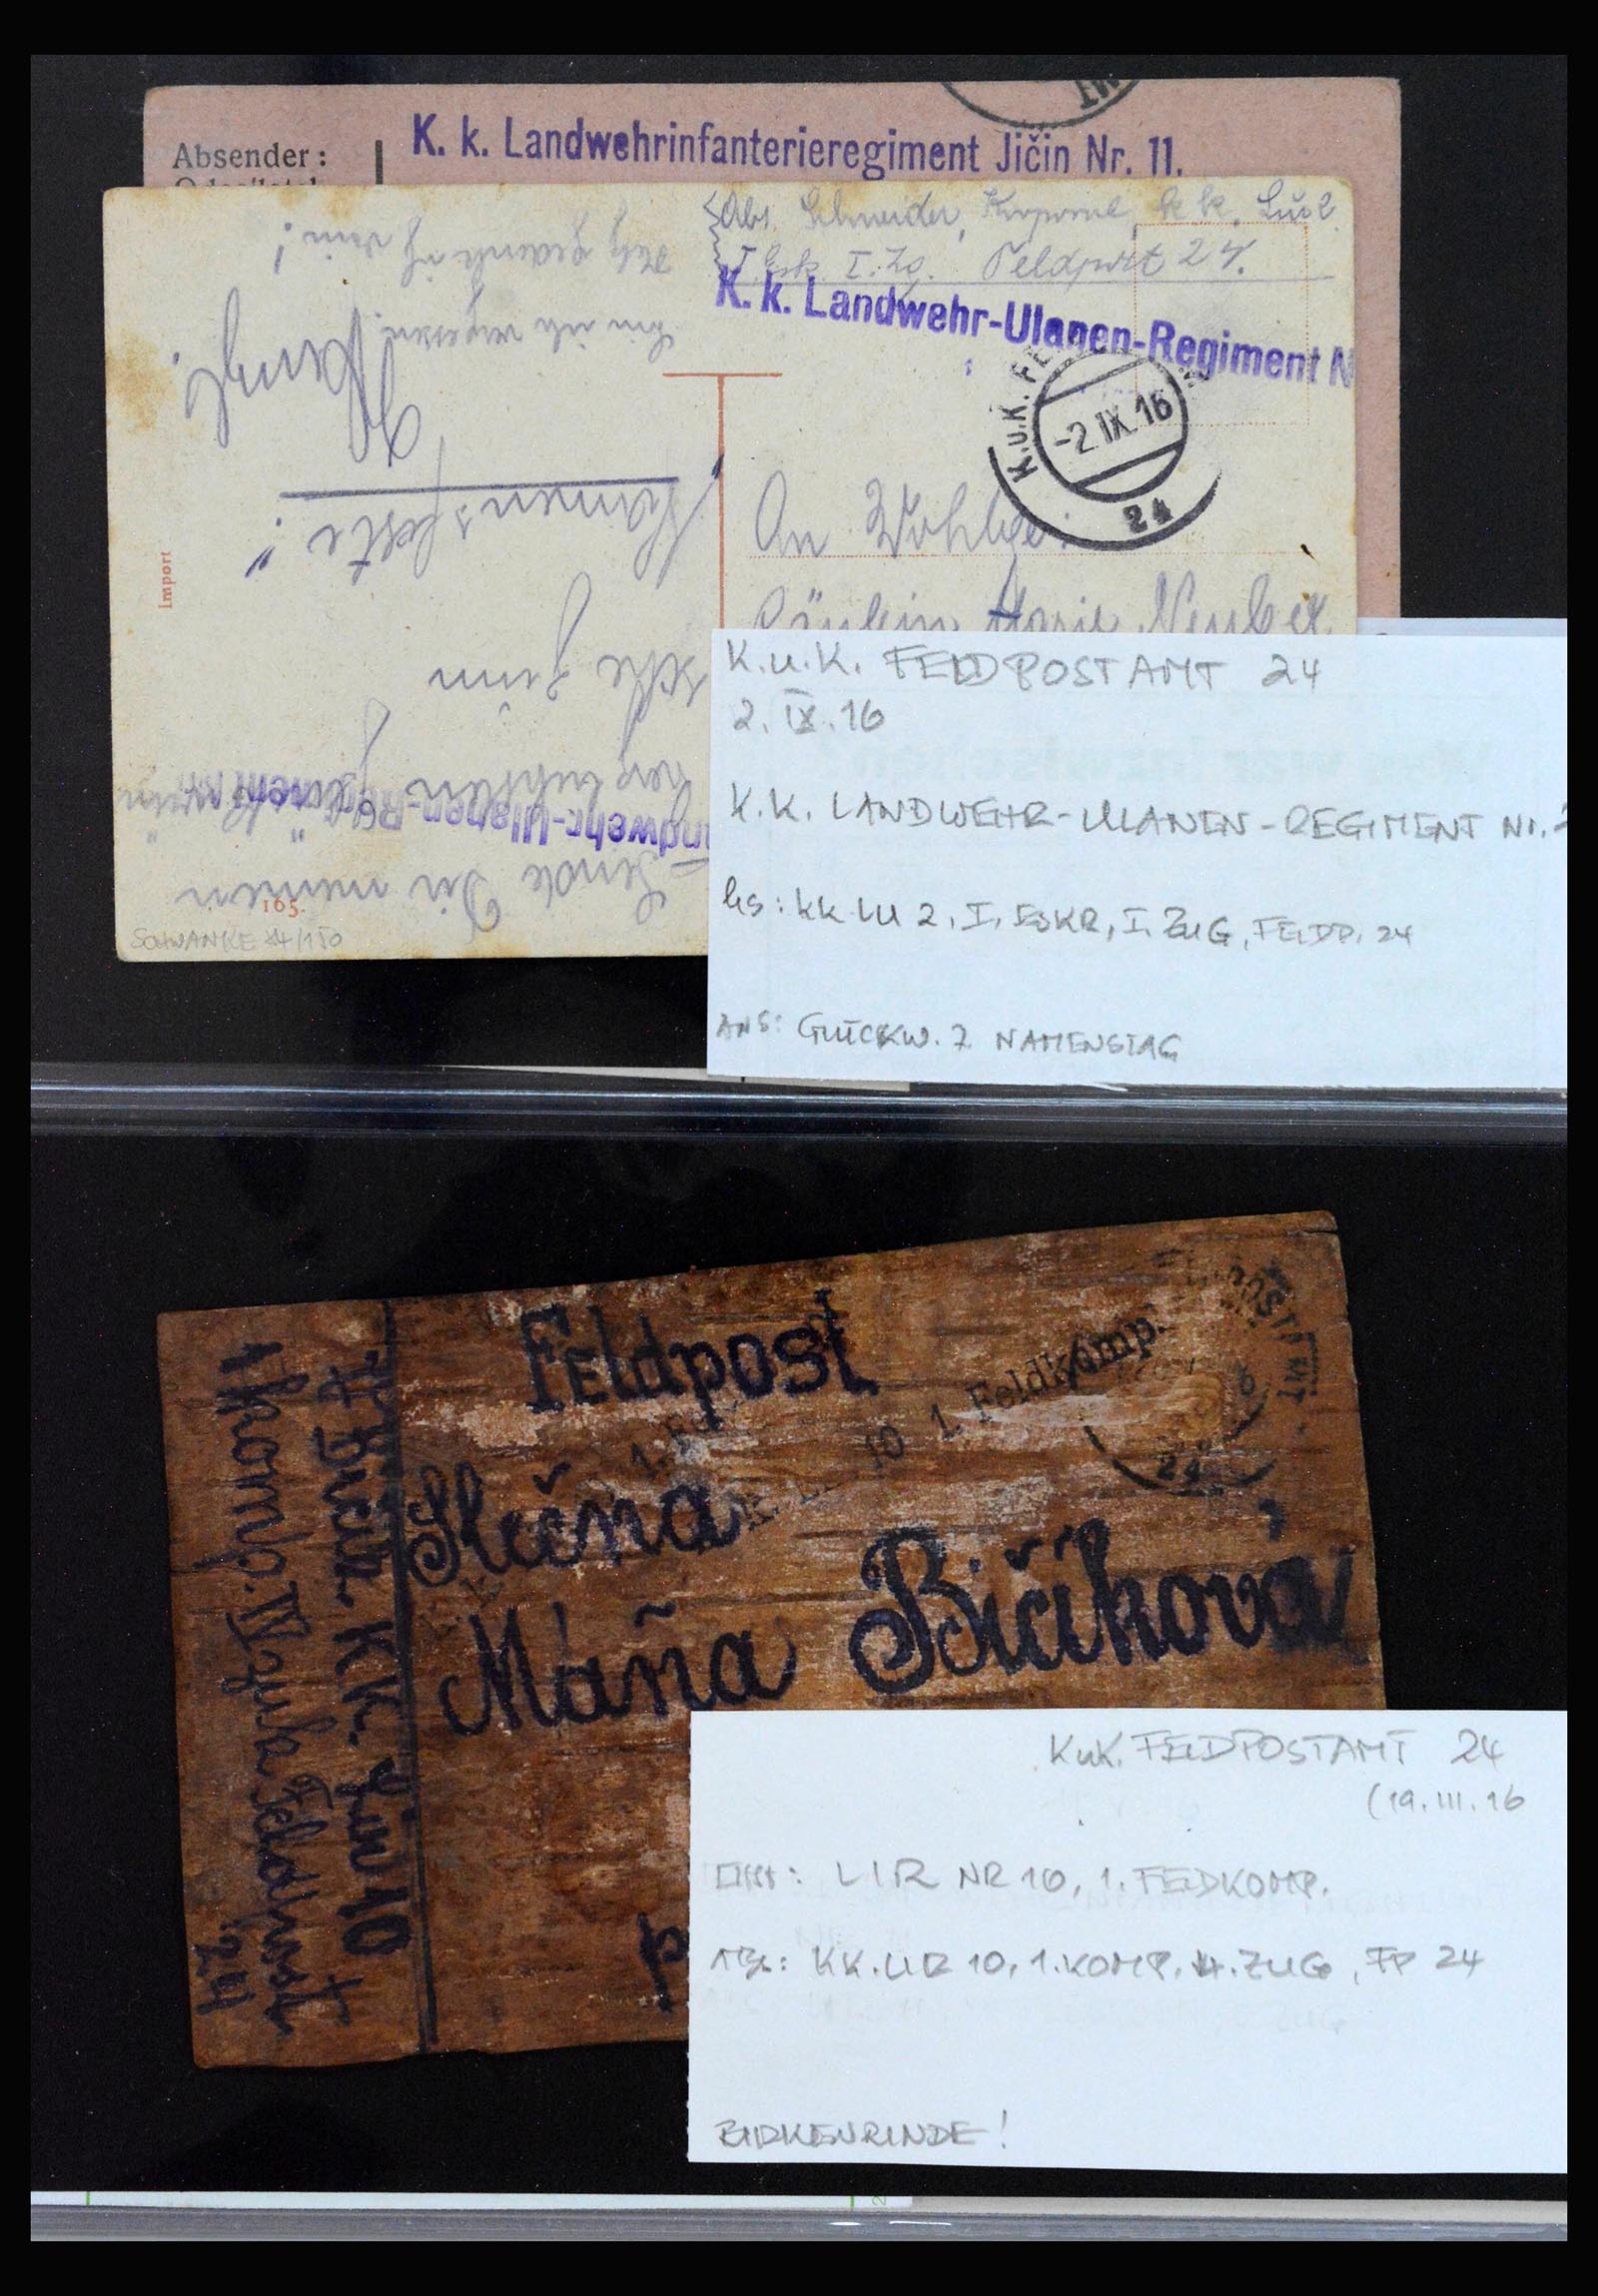 Absender:
K. k. Landwehrinfanterieregiment Jičin Nr. 11.
Abs. Schneider, Korporal, k. k. Lur 2
I. Esk. I. Zg. Feldpost 24.
K. k. Landwehr-Ulanen-Regiment N
K.u.K. FE
-2.IX.16
24
An Wohlge
Fräulein Marie
Import
165.
SCHWANKE 24/150
Sende Dir meinen
herzlichsten
zum
Namensfeste!
ndwehr-Ulanen-Regiment Nr.
K.u.K. FELDPOSTAMT 24
2. IX. 16
K.K. LANDWEHR-ULANEN-REGIMENT Nr. 2
bs: KK LU 2, I. ESKR, I. ZUG, FELDP. 24
ANS: GLÜCKW. Z NAMENSTAG
Feldpost
1. Feldkomp.
10
24
Slečna
Máňa Bičíková
K.K.
10
1 komp. IV zug Feldpost
24
K.u.K. FELDPOSTAMT 24
(19. III. 16
LIR NR 10, 1. FELDKOMP.
Abs: KK. LIR 10, 1. KOMP. 4. ZUG, FP 24
BIRKENRINDE!
2